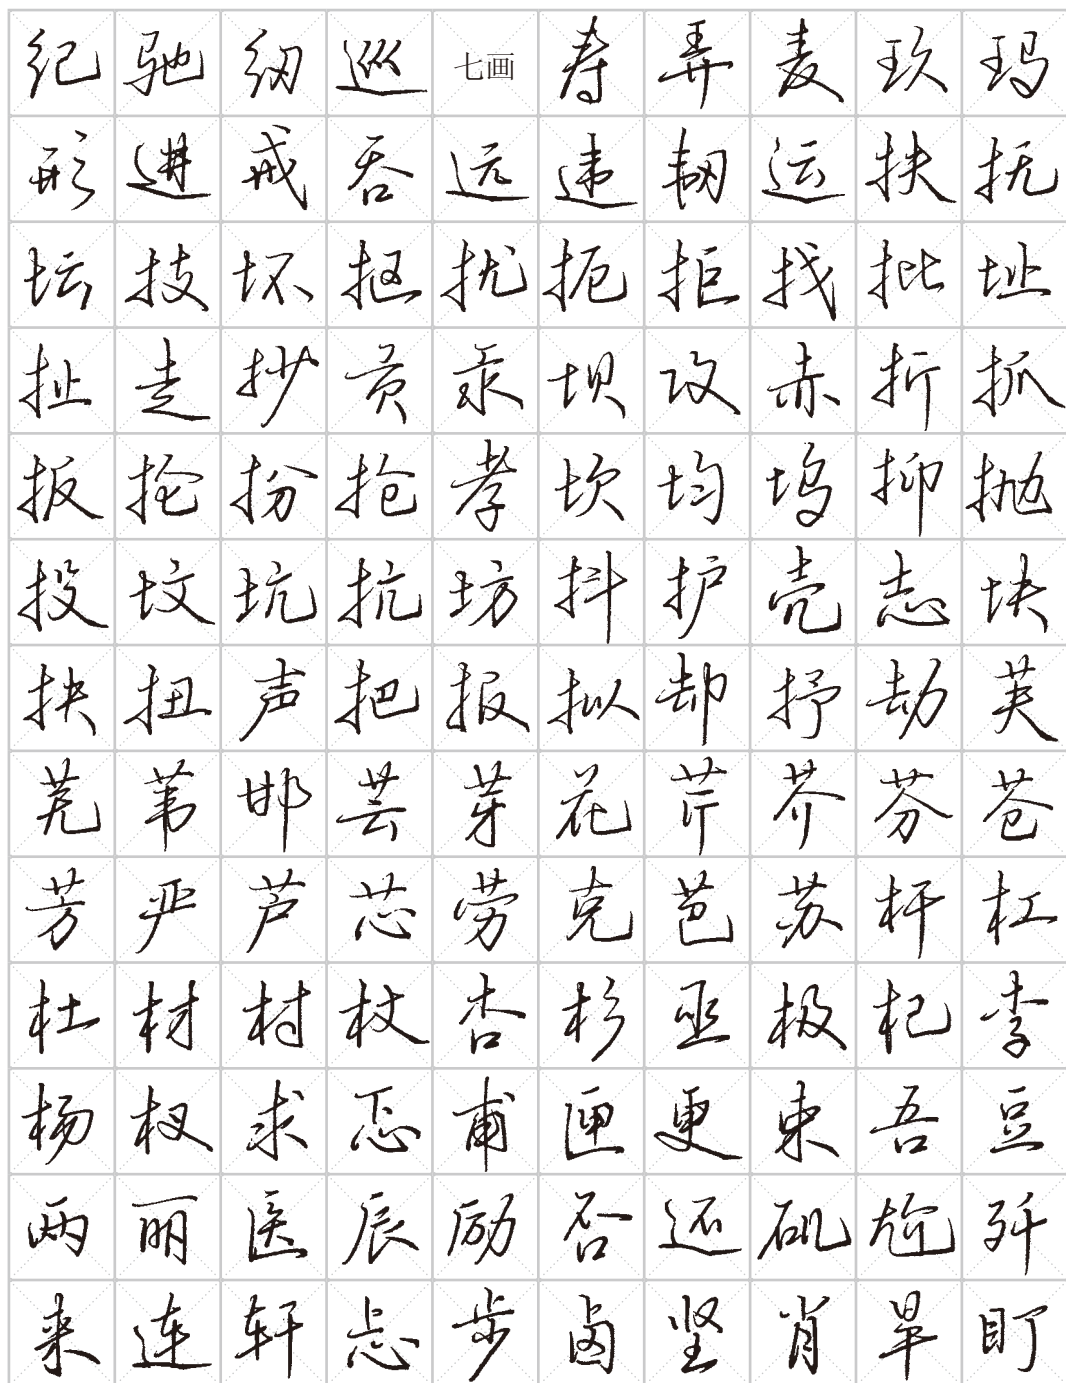 纪驰纫巡七画寿弄麦玖玛
形进戒吞远违韧运扶抚
坛技坏抠扰扼拒找批址
扯走抄贡汞坝攻赤折抓
扳抡扮抢孝坎均坞抑抛
投坟坑抗坊抖护壳志块
抉扭声把报拟却抒劫芙
芜苇邯芸芽花芹芥芬苍
芳严芦芯劳克芭苏杆杠
杜材村杖杏杉巫极杞李
杨杈求忑甫匣更束吾豆
两丽医辰励否还矶尬歼
来连轩忐步卤坚肖旱盯